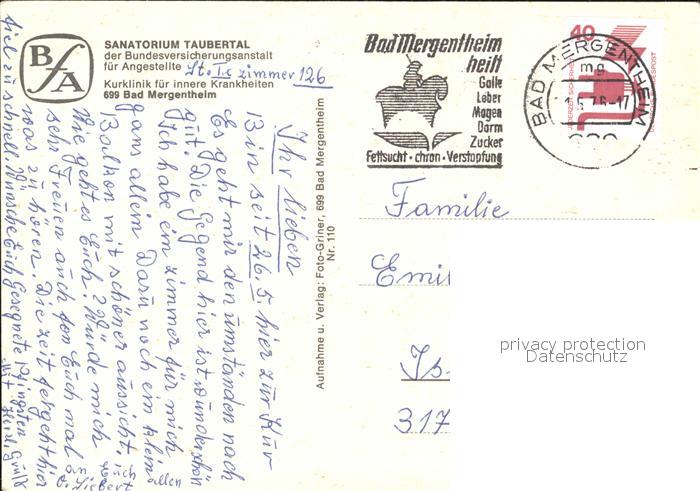 BfA
SANATORIUM TAUBERTAL
der Bundesversicherungsanstalt
für Angestellte St. I.c zimmer 126
Kurklinik für innere Krankheiten
699 Bad Mergentheim
Ihr lieben
Bin seit 26.5 hier zur Kur
Es geht mir den umständen nach
gut. Die Gegend hier ist wunderschön
Ich habe ein zimmer für mich
gans allein. Dazu noch ein klein
Balkon mit schöner aussicht.
Wie geht es Euch? Würde mich
sehr Freuen auch fon Euch mal
was zu hören. Die zeit fergeht hier
fiel zu schnell. Wünsche Euch Gesegnete Pfingsten
Mit Herzl. Grüß
an Euch allen
Aufnahme u. Verlag: Foto-Griner, 699 Bad Mergentheim
Nr. 110
Bad Mergentheim
heilt
Galle
Leber
Magen
Darm
Zucker
Fettsucht · chron · Verstopfung
40
JEDERZEIT SICHERHEIT
BAD MERGENTHEIM
mg
6.76-17
Familie
Emil
Is
317
privacy protection
Datenschutz